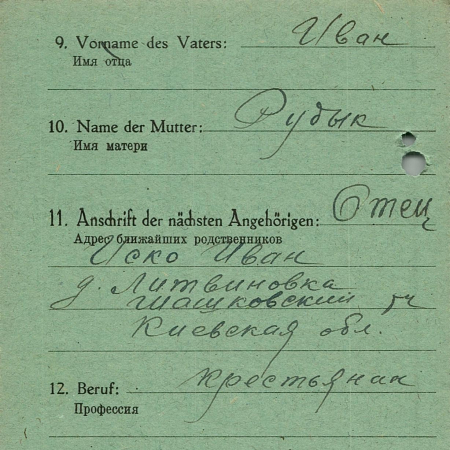 9. Vorname des Vaters: Иван
Имя отца
10. Name der Mutter: Рудык
Имя матери
11. Anschrift der nächsten Angehörigen: Отец
Адрес ближайших родственников
Иско Иван
д. Литвиновка
Киевская обл.
12. Beruf: крестьянин
Профессия